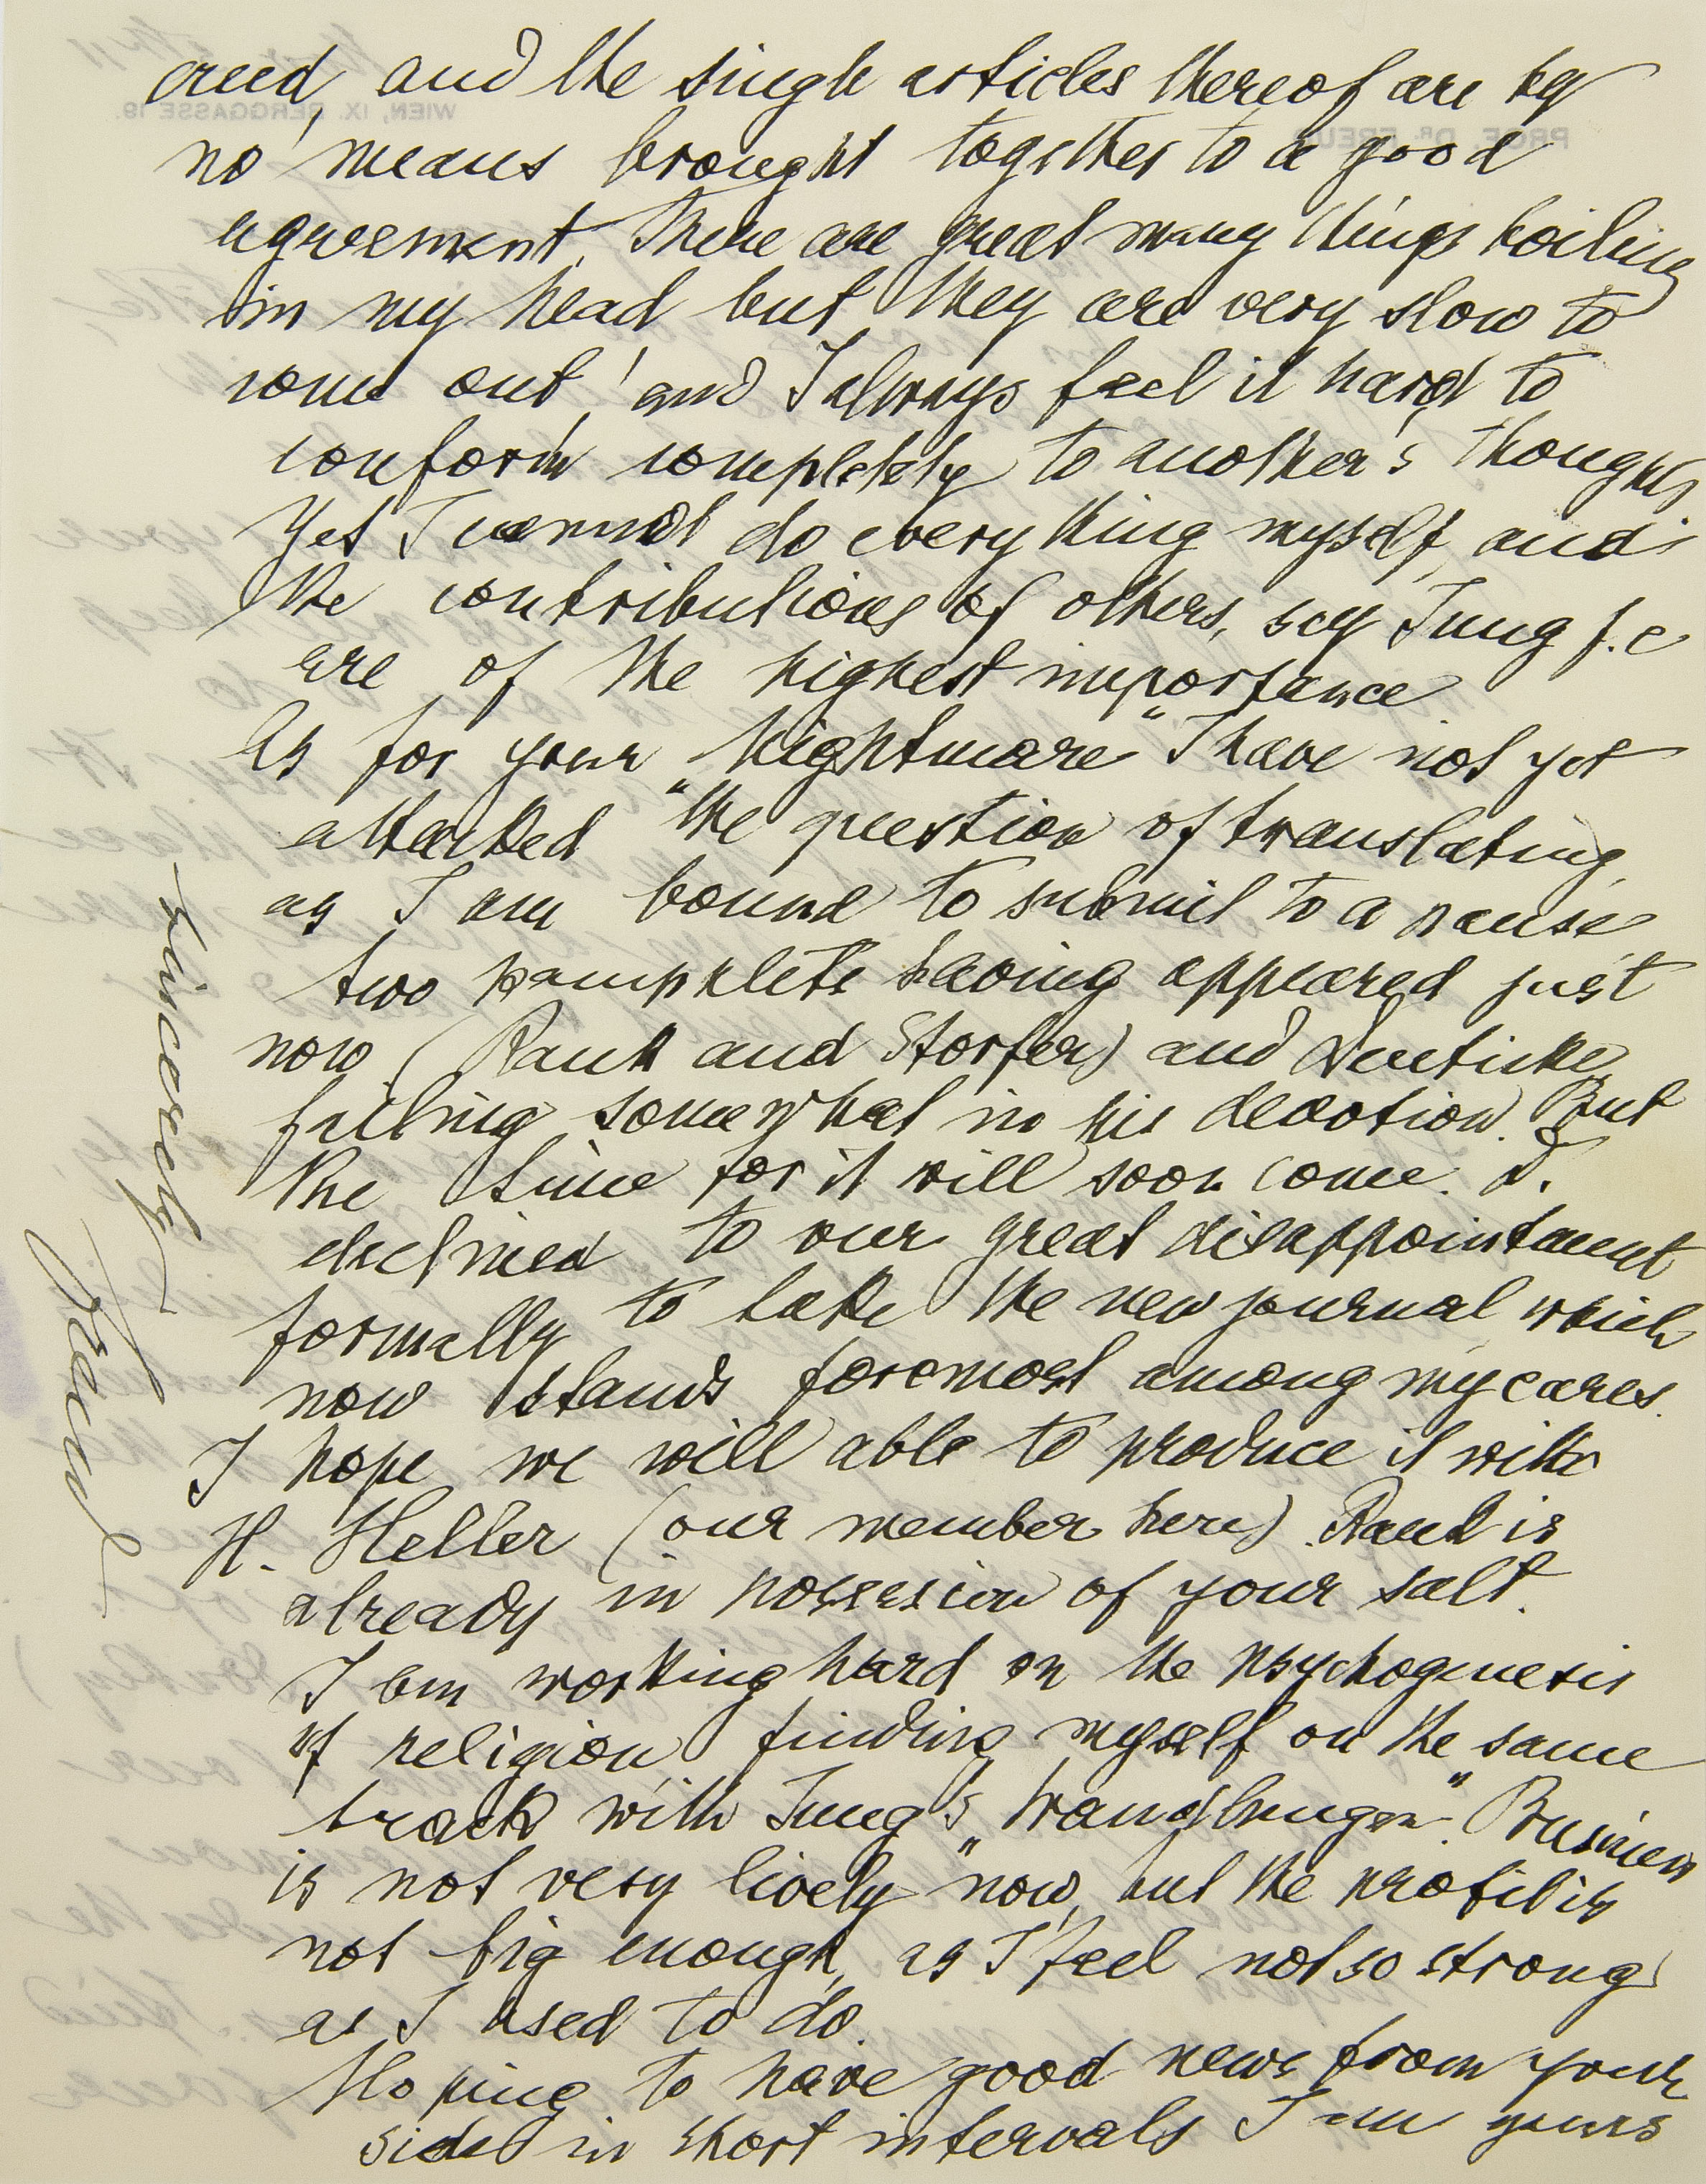 creed and the single articles thereof are by
no means brought together to a good
agreement. There are great many things boiling
in my head but they are very slow to
come out, and I always feel it hard to
conform completely to another's thoughts
Yet I cannot do everything myself, and
the contributions of others, say Jung f.e
are of the highest importance
As for your „Nightmare" I have not yet
attacked the question of translating,
as I am bound to submit to a pause
two pamphlets having appeared just
now (Rank and Storfer) and Deuticke
failing somewhat in his devotion. But
the time for it will soon come. D.
declined to our great disappointment
formally to take the new journal which
now stands foremost among my cares.
I hope we will able to produce it with
H. Heller (our member here). Rank is
already in possession of your salt.
I am working hard on the psychogenesis
of religion, finding myself on the same
track with Jung's „Wandlungen". Business
is not very lively now, but the profit is
not big enough, as I feel not so strong
as I used to do.
Hoping to have good news from your
side in short intervals I am yours
sincerely
Freud
PROF. DR. FREUD
WIEN, IX. BERGGASSE 19.